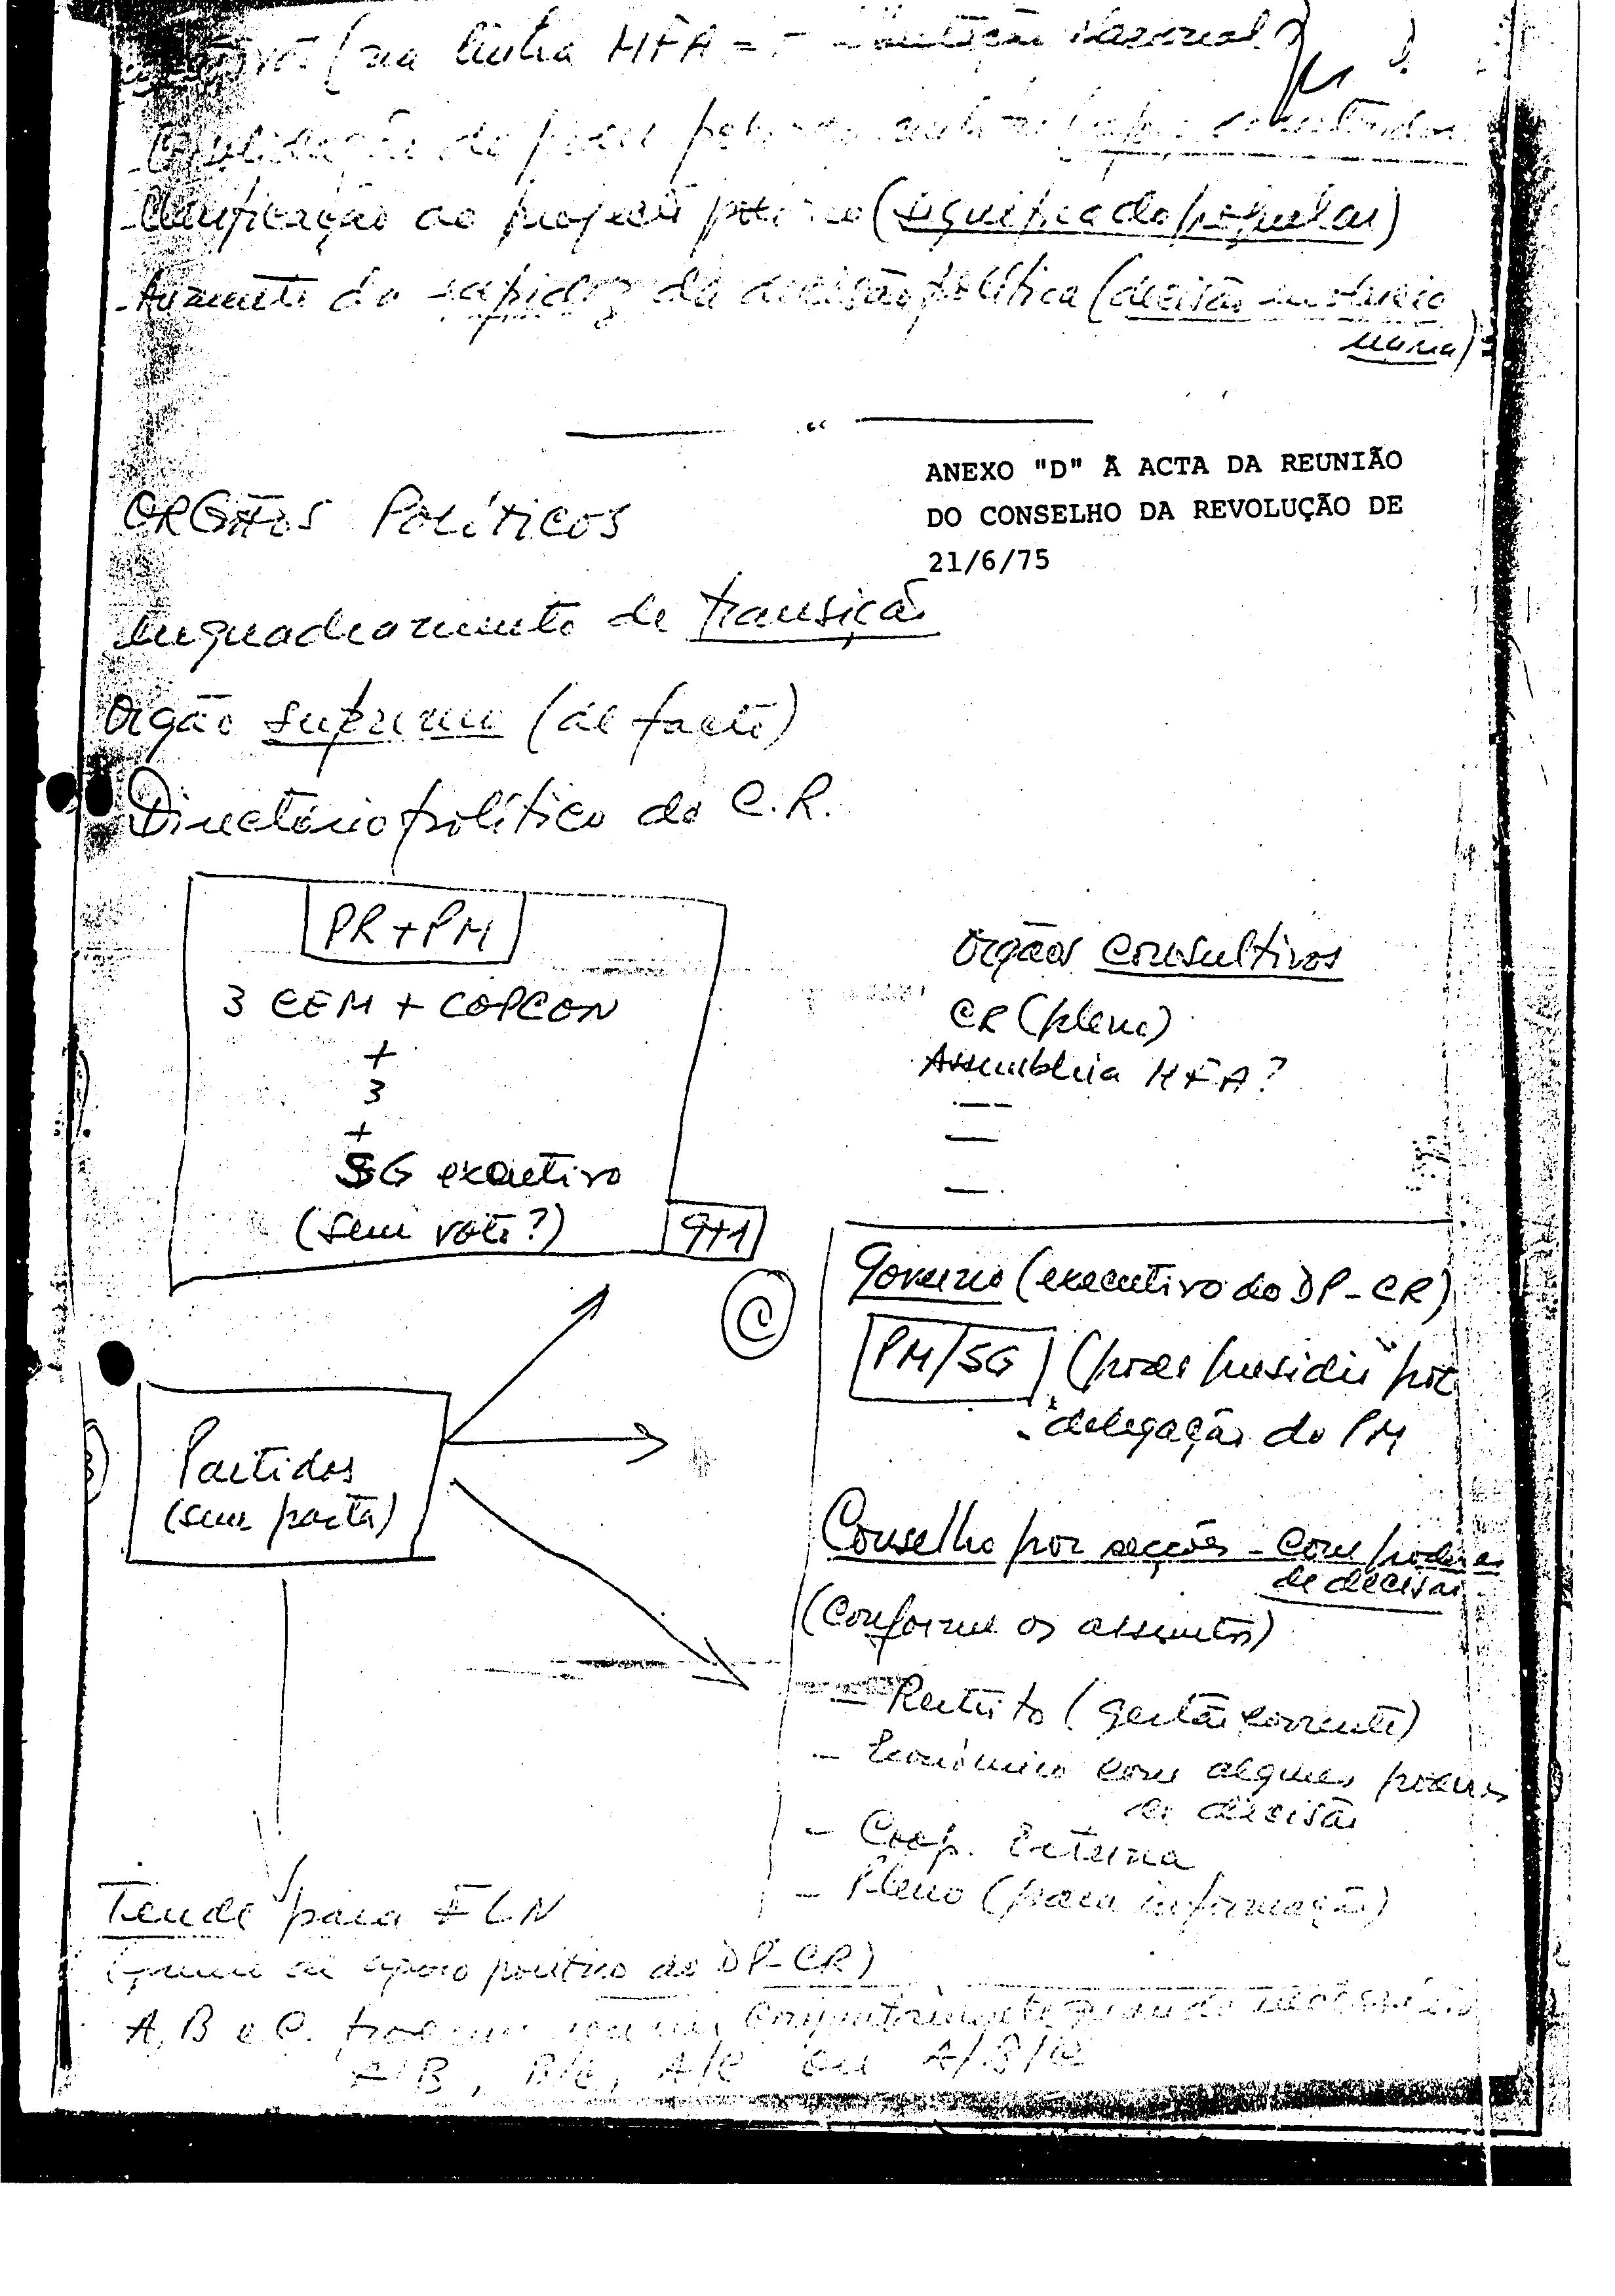 (na linha MFA =
Clarificação do projecto político (significado popular)
- Aumento da rapidez da decisão política (decisão revolucio
nária)
ANEXO "D" À ACTA DA REUNIÃO
DO CONSELHO DA REVOLUÇÃO DE
21/6/75
ORGÃOS POLÍTICOS
Enquadramento de transição
Orgão supremo (de facto)
Directório político do C.R.
PR + PM
3 CEM + COPCON
+
3
+
SG executivo
(sem voto?)
9+1
Orgãos consultivos
CR (pleno)
Assembleia MFA?
—
—
—
C
Governo (executivo do DP-CR)
PM/SG (pode presidir por
delegação do PM
Partidos
(sem pasta)
Conselho por secções - com poderes
de decisão
(Conforme os assuntos)
- Restrito (gestão corrente)
- Económico com alguns poderes
de decisão
- Coop. Externa
- Pleno (para informação)
Tende para FLN
apoio político do DP-CR)
A, B e C. podem reunir conjuntamente quando necessário
A/B, B/C, A/C ou A/B/C